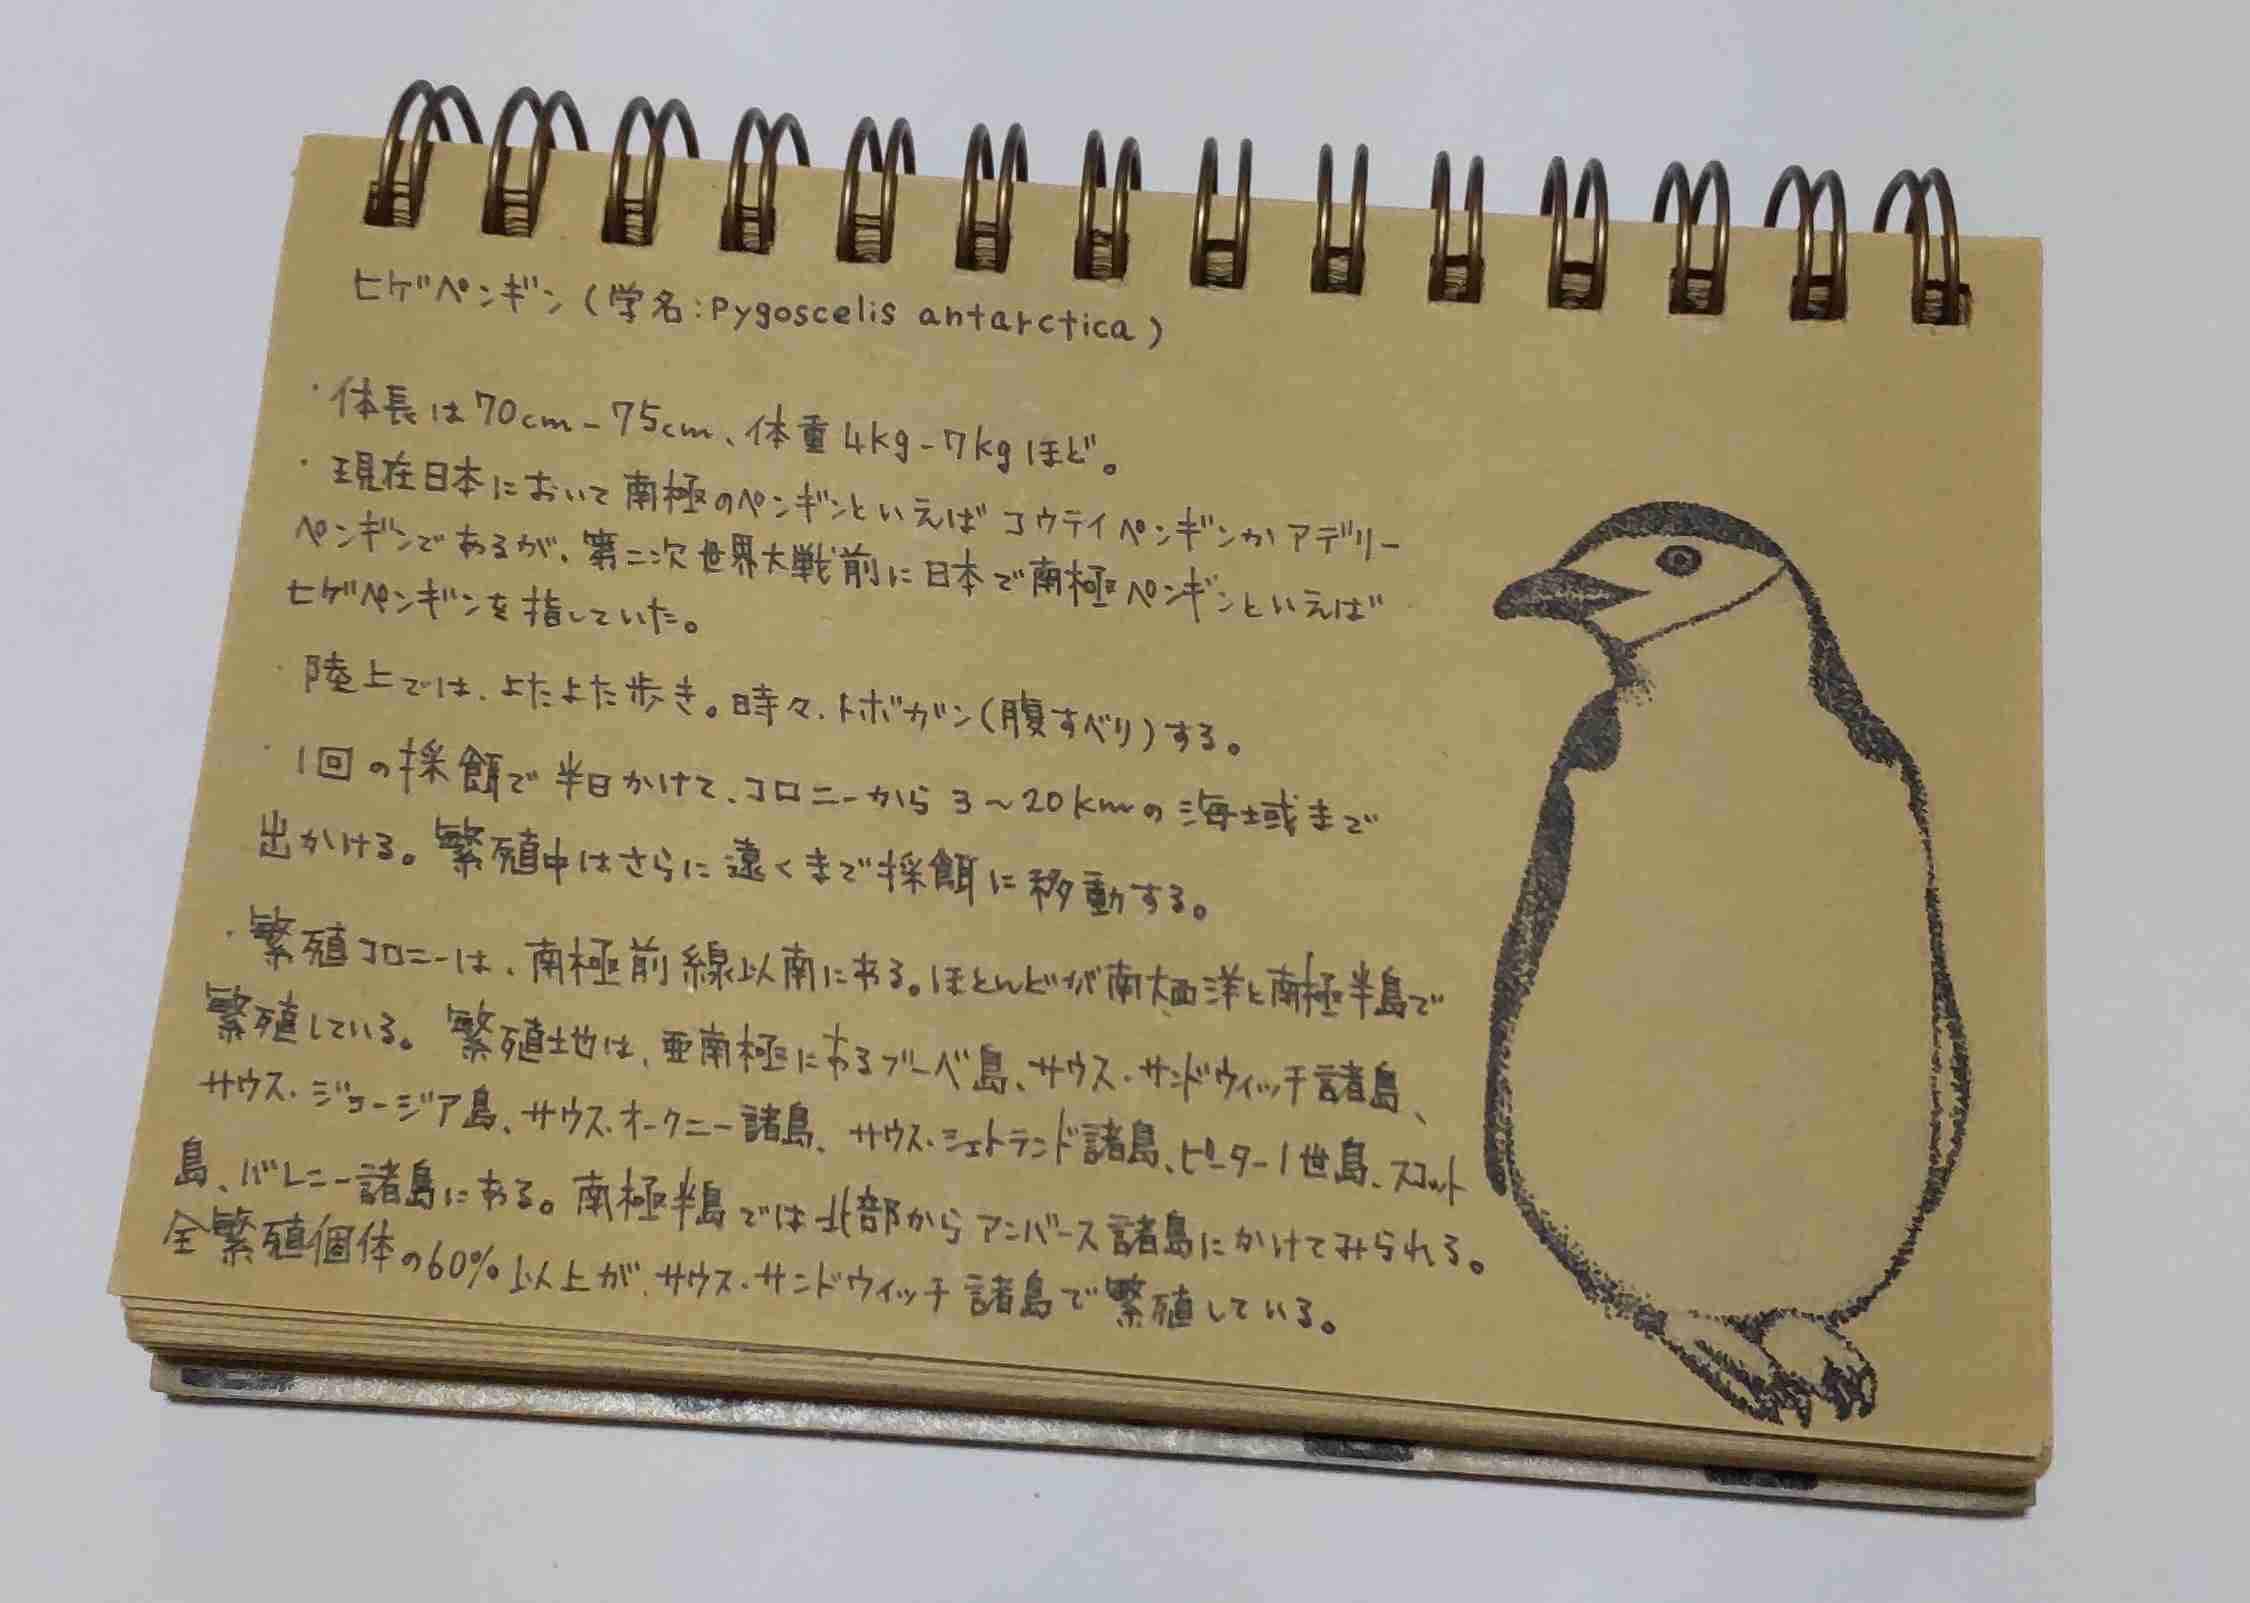 ヒゲペンギン(学名:Pygoscelis antarctica)
・体長は70cm-75cm、体重4kg-7kgほど。
・現在日本において南極のペンギンといえばコウテイペンギンかアデリー
ペンギンであるが、第二次世界大戦前に日本で南極ペンギンといえば
ヒゲペンギンを指していた。
・陸上では、よたよた歩き。時々、トボガン(腹すべり)する。
・1回の採餌で半日かけて、コロニーから3~20kmの海域まで
出かける。繁殖中はさらに遠くまで採餌に移動する。
・繁殖コロニーは、南極前線以南にある。ほとんどが南大西洋と南極半島で
繁殖している。繁殖地は、亜南極にあるブーベ島、サウス・サンドウィッチ諸島、
サウス・ジョージア島、サウス・オークニー諸島、サウス・シェトランド諸島、ピーター1世島、スコット
島、バレニー諸島にある。南極半島では北部からアンバース諸島にかけてみられる。
全繁殖個体の60%以上が、サウス・サンドウィッチ諸島で繁殖している。